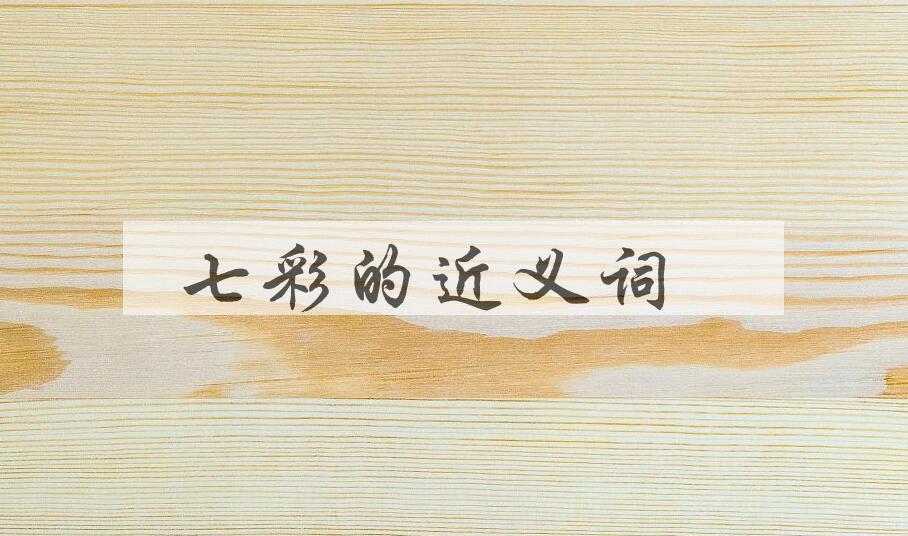 七彩的近义词